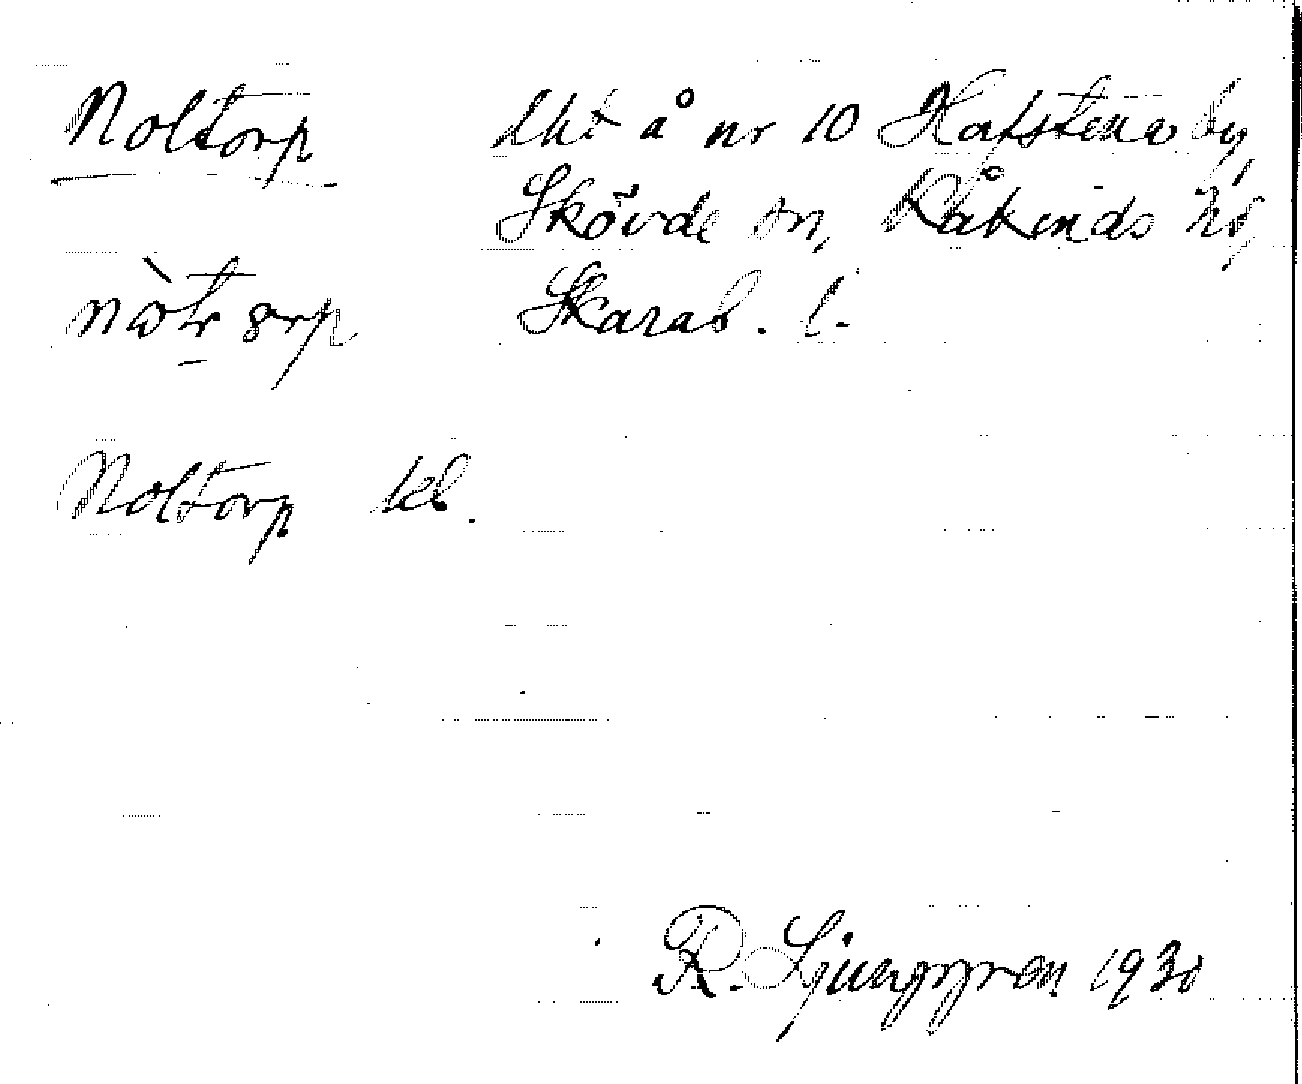 Noltorp lht å nr 10 Hatstena by,
Skövde sn, Kåkinds hd,
Skarab. l.
Noltorp kl.
R. Ljunggren 1930